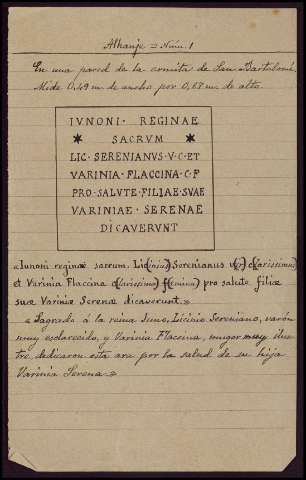 Alhanje = Núm. 1
En una pared de la ermita de San Bartolomé.
Mide 0,49 m. de ancho por 0,68 m. de alto.
IVNONI · REGINAE
SACRVM
LIC · SERENIANVS · V · C · ET
VARINIA · FLACCINA · C · F
PRO · SALVTE · FILIAE · SVAE
VARINIAE · SERENAE
DICAVERVNT
«Iunoni reginæ sacrum. Lic(inius) Serenianus v(ir) c(larissimus)
et Varinia Flaccina c(larissima) f(emina) pro salute filiæ
suæ Variniæ Serenæ dicaverunt.»
«Sagrado á la reina Juno. Licinio Sereniano, varón
muy esclarecido, y Varinia Flaccina, mujer muy ilus
tre, dedicaron esta ara por la salud de su hija
Varinia Serena.»